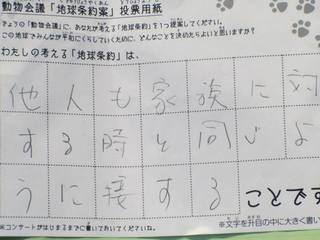 動物会議「地球条約案」投票用紙
きょうの「動物会議」に、あなたが考える「地球条約」を1つ提案してください。
この地球でみんなが平和にくらしていくために、どんなことを決めたらよいと思いますか？
わたしの考える「地球条約」は、
他人も家族に対
する時と同じよ
うに接する ことです
※コンサートがはじまるまでに書いておいてくださいね。
※文字を升目の中に大きく書い